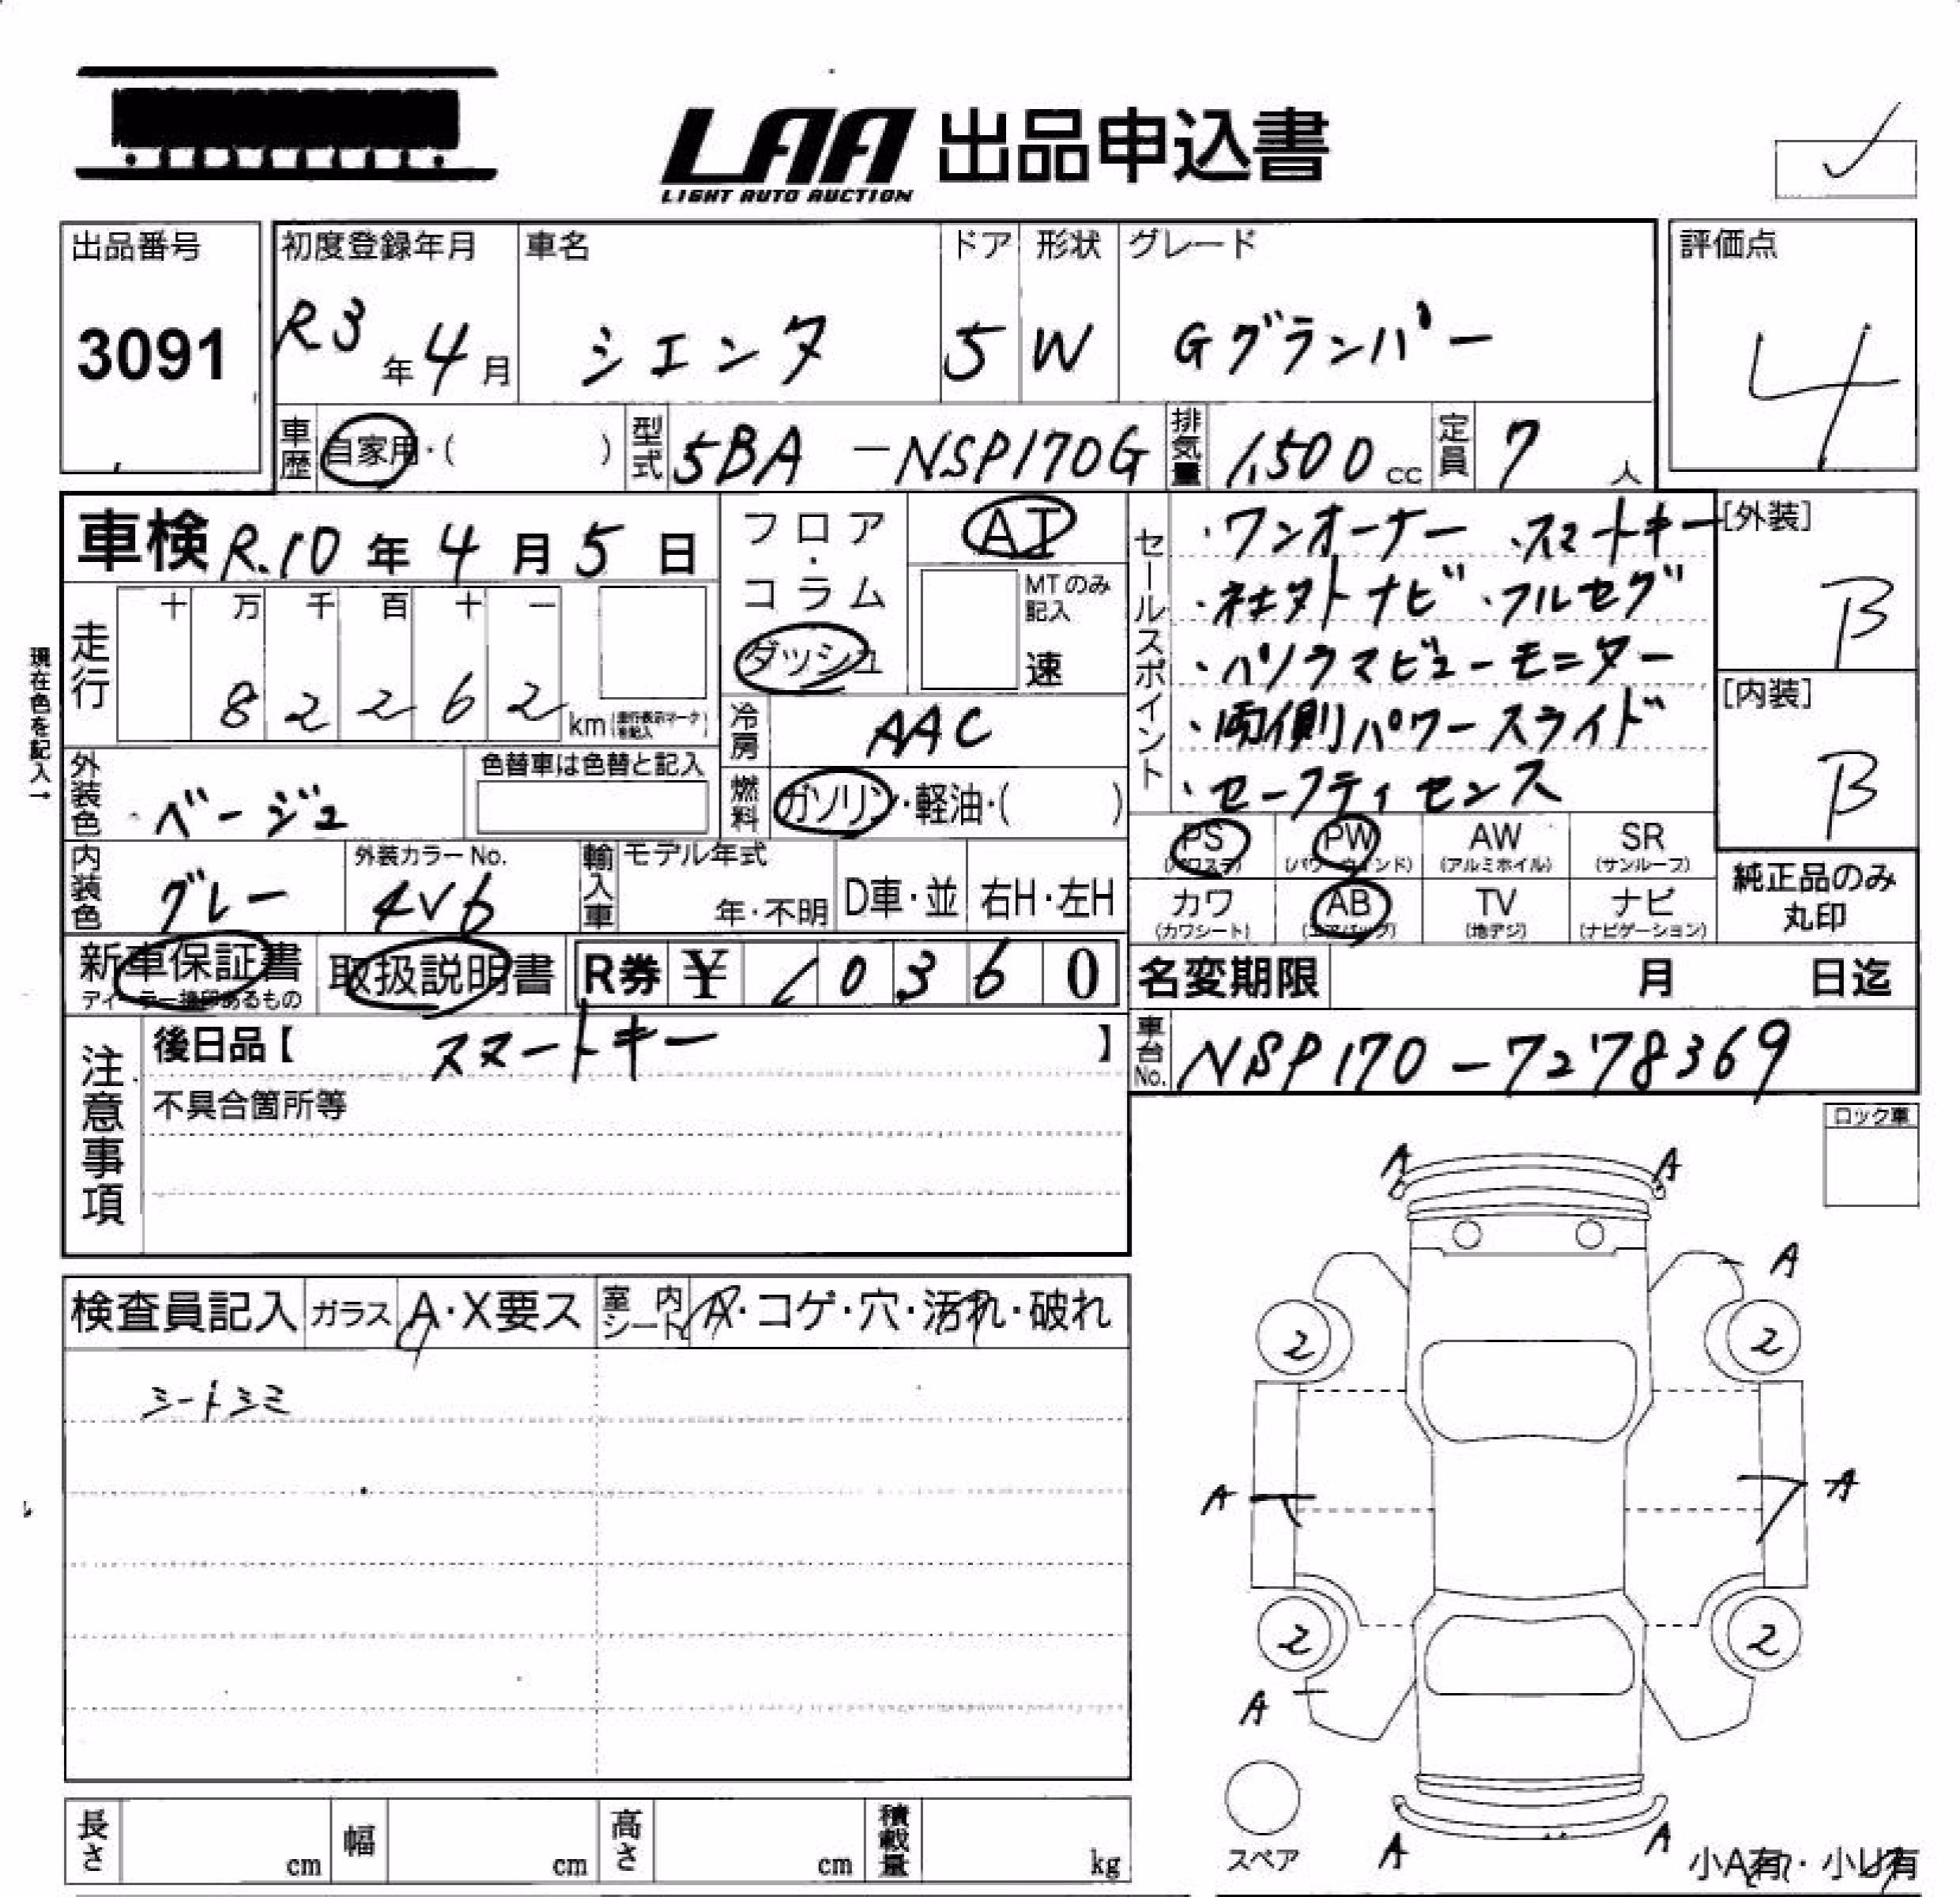 LAA 出品申込書
LIGHT AUTO AUCTION
出品番号 初度登録年月 車名 ドア 形状 グレード 評価点
3091 R3年4月 シエンタ 5 W Gグランパー 4
車歴 自家用・( ) 型式 5BA-NSP170G 排気量 1,500cc 定員 7人
車検 R.10年4月5日
フロア・コラム
ダッシュ
AT
MTのみ記入
速
セールスポイント
・ワンオーナー ・スマートキー
・社外ナビ ・フルセグ
・パノラマビューモニター
・両側パワースライド
・セーフティセンス
[外装]
B
[内装]
B
現在色を記入→
走行 十 万 千 百 十 一
8 2 2 6 2 km (走行表示マークを記入)
冷房 AAC
外装色 ベージュ 色替車は色替と記入
燃料 ガソリン・軽油・( )
PS (パワステ) PW (パワーウィンド) AW (アルミホイル) SR (サンルーフ)
カワ (カワシート) AB (エアバッグ) TV (地デジ) ナビ (ナビゲーション)
純正品のみ
丸印
内装色 グレー 外装カラーNo. 4V6 輸入車 モデル年式 年・不明 D車・並 右H・左H
新車保証書 取扱説明書 R券 ¥ 10360
ディーラー捺印あるもの
名変期限 月 日迄
注意事項
後日品【 スマートキー 】
不具合箇所等
車台No. NSP170-7278369
ロック車
A A
A
2 2
A A
2 2
A
A A
スペア
小A有・小U有
検査員記入 ガラス A・X要ス 室内シート A・コゲ・穴・汚れ・破れ
シートシミ
長さ cm 幅 cm 高さ cm 積載量 kg